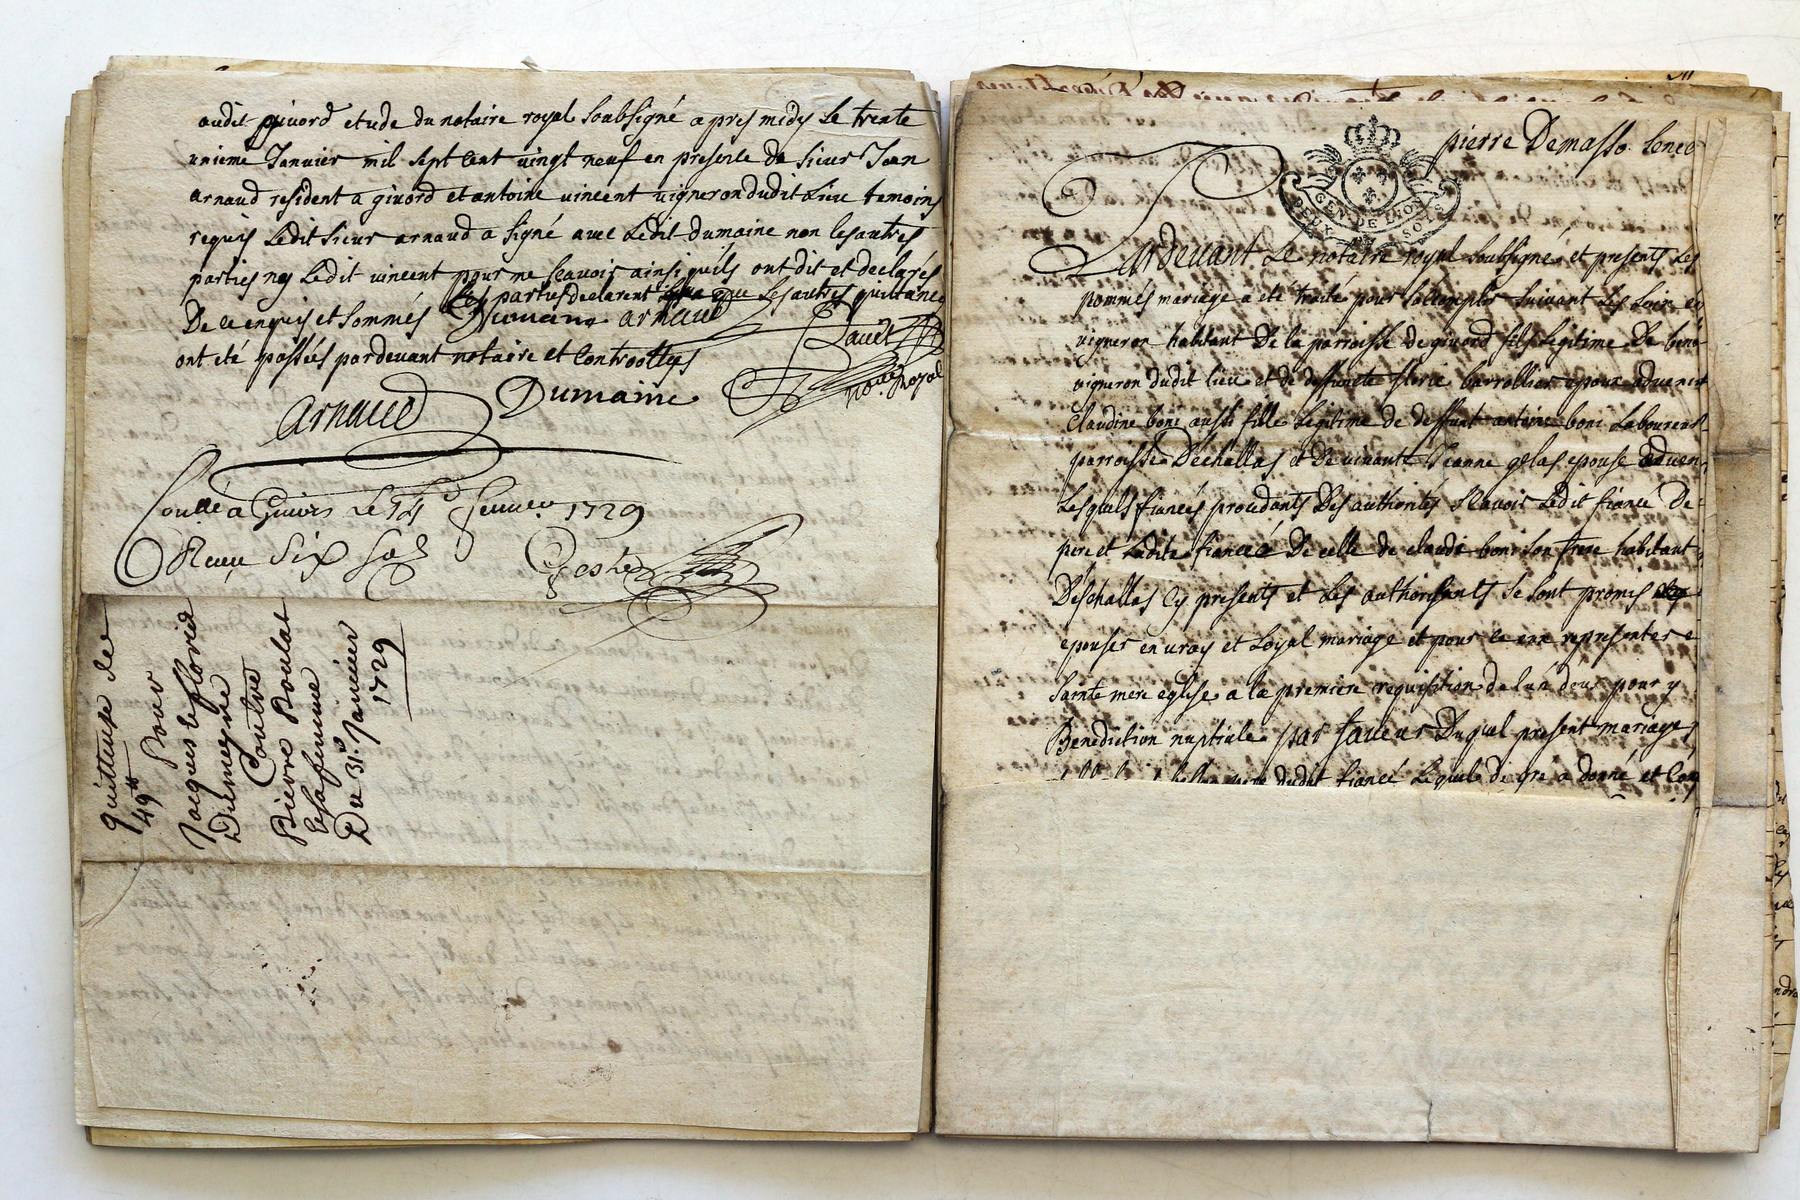 audit givord etude du notaire royal soubsigné apres midy le trente
unieme Janvier mil sept cent vingt neuf en presence de sieur Jean
arnaud resident a givord et antoine vincent vigneron dudit lieu temoins
requis ledit sieur arnaud a signé avec ledit dumaine non les autres
parties ny ledit vincent pour ne scavoir ainsi quils ont dit et declarés
les parties declarent que les autres quittances
De ce enquis et sommés Dumaine arnaud
ont eté passées pardevant notaire et controollees
arnaud Dumaine
royal
a Givors le 14 fevrier 1729
Receu six sols
quittance de
49
pour
Jacques et florida
Dumeyne
Contre
Pierre Poulat
et sa femme
Du 31e. Janvier
1729
pierre Demasso
GEN DE LYON
DEUX SOLS
Pardevant Le notaire royal soubsigné et presents les
nommés mariage a eté traité pour saccomplir suivant les loix
vigneron habitant De la parroisse de givord fils legitime De
vigneron dudit lieu et de deffuncte florie barrollier epoux advenir
Claudine boni aussi fille legitime de deffunt antoine boni Laboureur
parroisse Dechallas et De vivante Jeanne gelas epouse adven
Lesquels fiancés procedants Des authorités scavoir ledit fiancé De
pere et Ladite fiancée De celle de claude boni son frere habitant
Deschallas cy presents et les authorisants se sont promis
epouser en vray et Loyal mariage et pour ce ere representer
Sainte mere eglise a la premiere requisition de lun deux pour y
Benediction nuptiale par faveur Duquel present mariage
dudit fiancé Lequel de gre a donné et